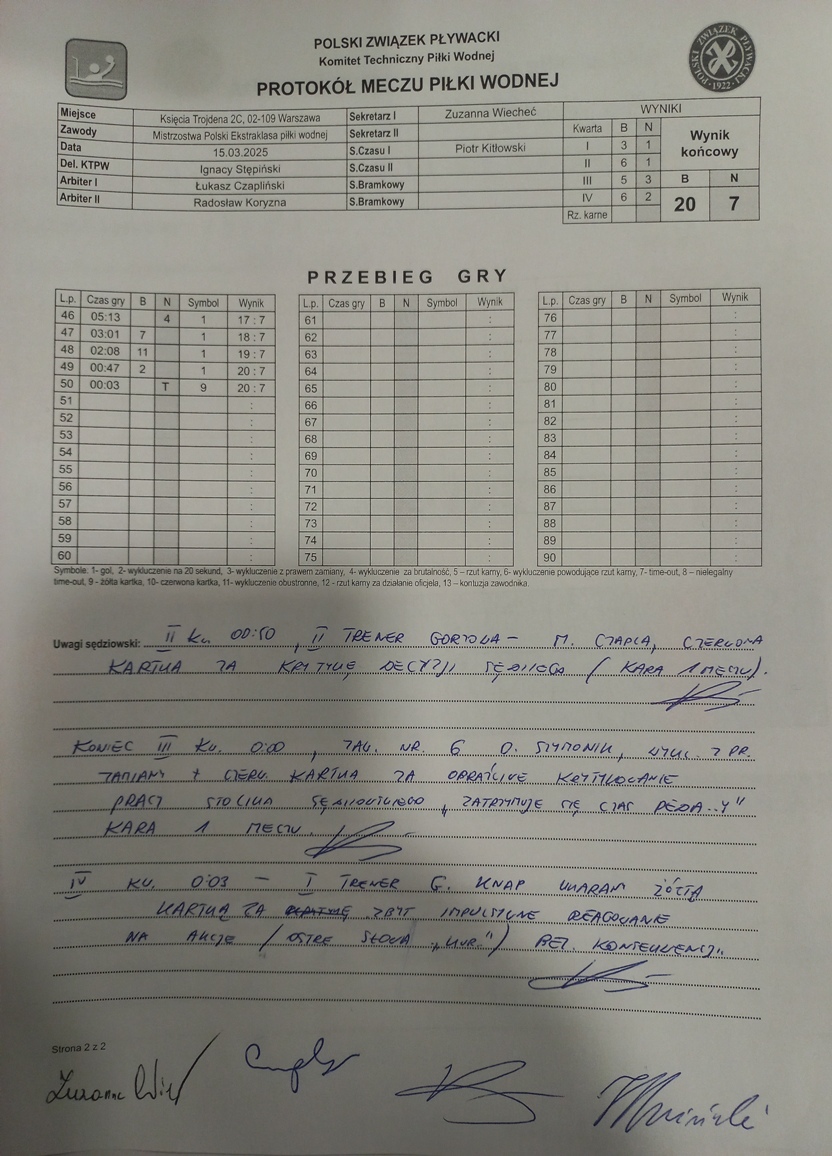 POLSKI ZWIĄZEK PŁYWACKI
Komitet Techniczny Piłki Wodnej
PROTOKÓŁ MECZU PIŁKI WODNEJ
POLSKI ZWIĄZEK PŁYWACKI 1922
Miejsce Księcia Trojdena 2C, 02-109 Warszawa Sekretarz I Zuzanna Wiecheć WYNIKI
Zawody Mistrzostwa Polski Ekstraklasa piłki wodnej Sekretarz II Kwarta B N Wynik końcowy
Data 15.03.2025 S.Czasu I Piotr Kitłowski I 3 1
Del. KTPW Ignacy Stępiński S.Czasu II II 6 1
Arbiter I Łukasz Czapliński S.Bramkowy III 5 3 B N
Arbiter II Radosław Koryzna S.Bramkowy IV 6 2 20 7
Rz. karne
PRZEBIEG GRY
L.p. Czas gry B N Symbol Wynik L.p. Czas gry B N Symbol Wynik L.p. Czas gry B N Symbol Wynik
46 05:13 4 1 17 : 7 61 : 76 :
47 03:01 7 1 18 : 7 62 : 77 :
48 02:08 11 1 19 : 7 63 : 78 :
49 00:47 2 1 20 : 7 64 : 79 :
50 00:03 T 9 20 : 7 65 : 80 :
51 : 66 : 81 :
52 : 67 : 82 :
53 : 68 : 83 :
54 : 69 : 84 :
55 : 70 : 85 :
56 : 71 : 86 :
57 : 72 : 87 :
58 : 73 : 88 :
59 : 74 : 89 :
60 : 75 : 90 :
Symbole: 1- gol, 2- wykluczenie na 20 sekund, 3- wykluczenie z prawem zamiany, 4- wykluczenie za brutalność, 5 – rzut karny, 6- wykluczenie powodujące rzut karny, 7- time-out, 8 – nielegalny
time-out, 9 - żółta kartka, 10- czerwona kartka, 11- wykluczenie obustronne, 12 - rzut karny za działanie oficjela, 13 – kontuzja zawodnika.
Uwagi sędziowski: II kw. 00:50, II TRENER GORZOWA – M. CZAPLA, CZERWONA
KARTKA ZA KRYTYKĘ DECYZJI SĘDZIEGO (KARA 1 MECZU).
KONIEC III KW. 0:00, ZAW. NR. 6 D. SZYMONIK, WYKL. Z PR.
ZAMIANY + CZERW. KARTKA ZA OBRAŹLIWE KRYTYKOWANIE
PRACY STOLIKA SĘDZIOWSKIEGO „ZATRZYMUJE SIĘ CZAS PEDA..Y"
KARA 1 MECZU
IV KW. 0:03 – I TRENER G. KNAP UKARAM ŻÓŁTĄ
KARTKĄ ZA ZBYT IMPULSYWNE REAGOWANIE
NA AKCJE (OSTRE SŁOWA „KUR.") BEZ. KONSEKWENCJI.
Strona 2 z 2
Zuzanna